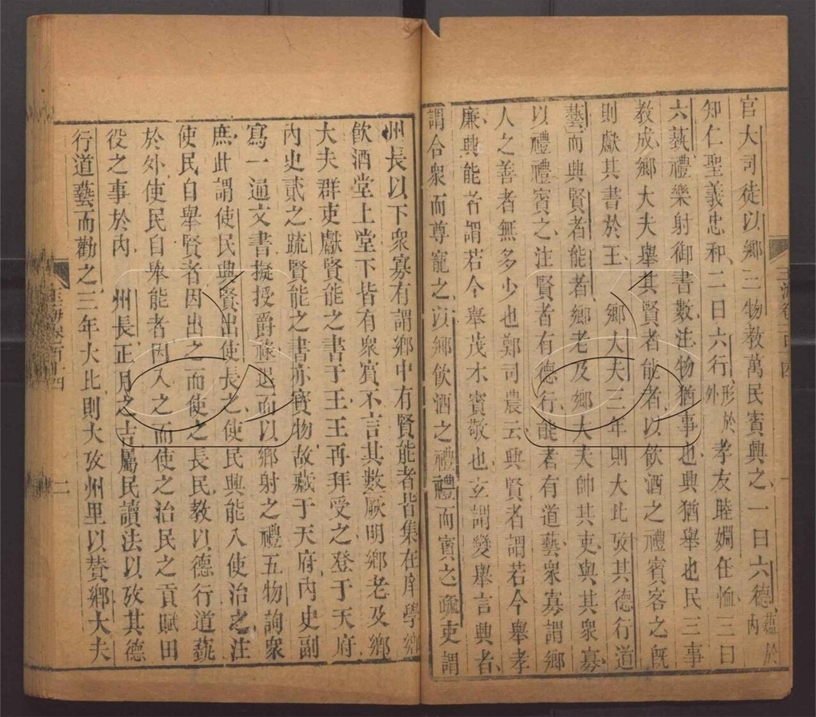 官大司徒以鄉三物教萬民賓興之一曰六德蘊於內
知仁聖義忠和二曰六行形於外孝友睦婣任恤三曰
六藝禮樂射御書數注物猶事也興猶舉也民三事
教成鄉大夫舉其賢者能者以飲酒之禮賓客之旣
則獻其書於王　鄉大夫三年則大比攷其德行道
藝而興賢者能者鄉老及鄉大夫帥其吏與其衆寡
以禮禮賓之注賢者有德行能者有道藝衆寡謂鄉
人之善者無多少也鄭司農云興賢者謂若今舉孝
廉興能者謂若今舉茂才賓敬也玄謂變舉言興者
謂合衆而尊寵之以鄉飲酒之禮禮而賓之疏吏謂
州長以下衆寡有謂鄉中有賢能者皆集在庠學鄉
飲酒堂上堂下皆有衆賓不言其數厥明鄉老及鄉
大夫群吏獻賢能之書于王王再拜受之登于天府
內史貳之疏賢能之書亦寶物故藏于天府內史副
寫一通文書擬授爵祿退而以鄉射之禮五物詢衆
庶此謂使民興賢出使長之使民興能入使治之注
使民自舉賢者因出之而使之長民教以德行道藝
於外使民自舉能者因入之而使之治民之貢賦田
役之事於內　州長正月之吉屬民讀法以攷其德
行道藝而勸之三年大比則大攷州里以贊鄉大夫
二